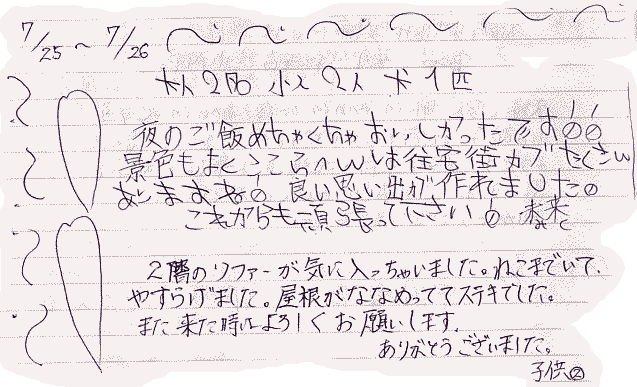 7/25 ~ 7/26
大人2名 小人2人 犬1匹
夜のご飯めちゃくちゃおいしかったです!!
景色もよくここらへんは住宅街がたくさん
ありますね! 良い思い出が作れました。
これからも頑張って下さい! 未来
2階のソファーが気に入っちゃいました。ねこまでいて、
やすらげました。屋根がななめっててステキでした。
また来た時はよろしくお願いします。
ありがとうございました。
子供②